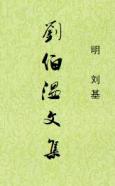 明 刘基
劉伯溫文集